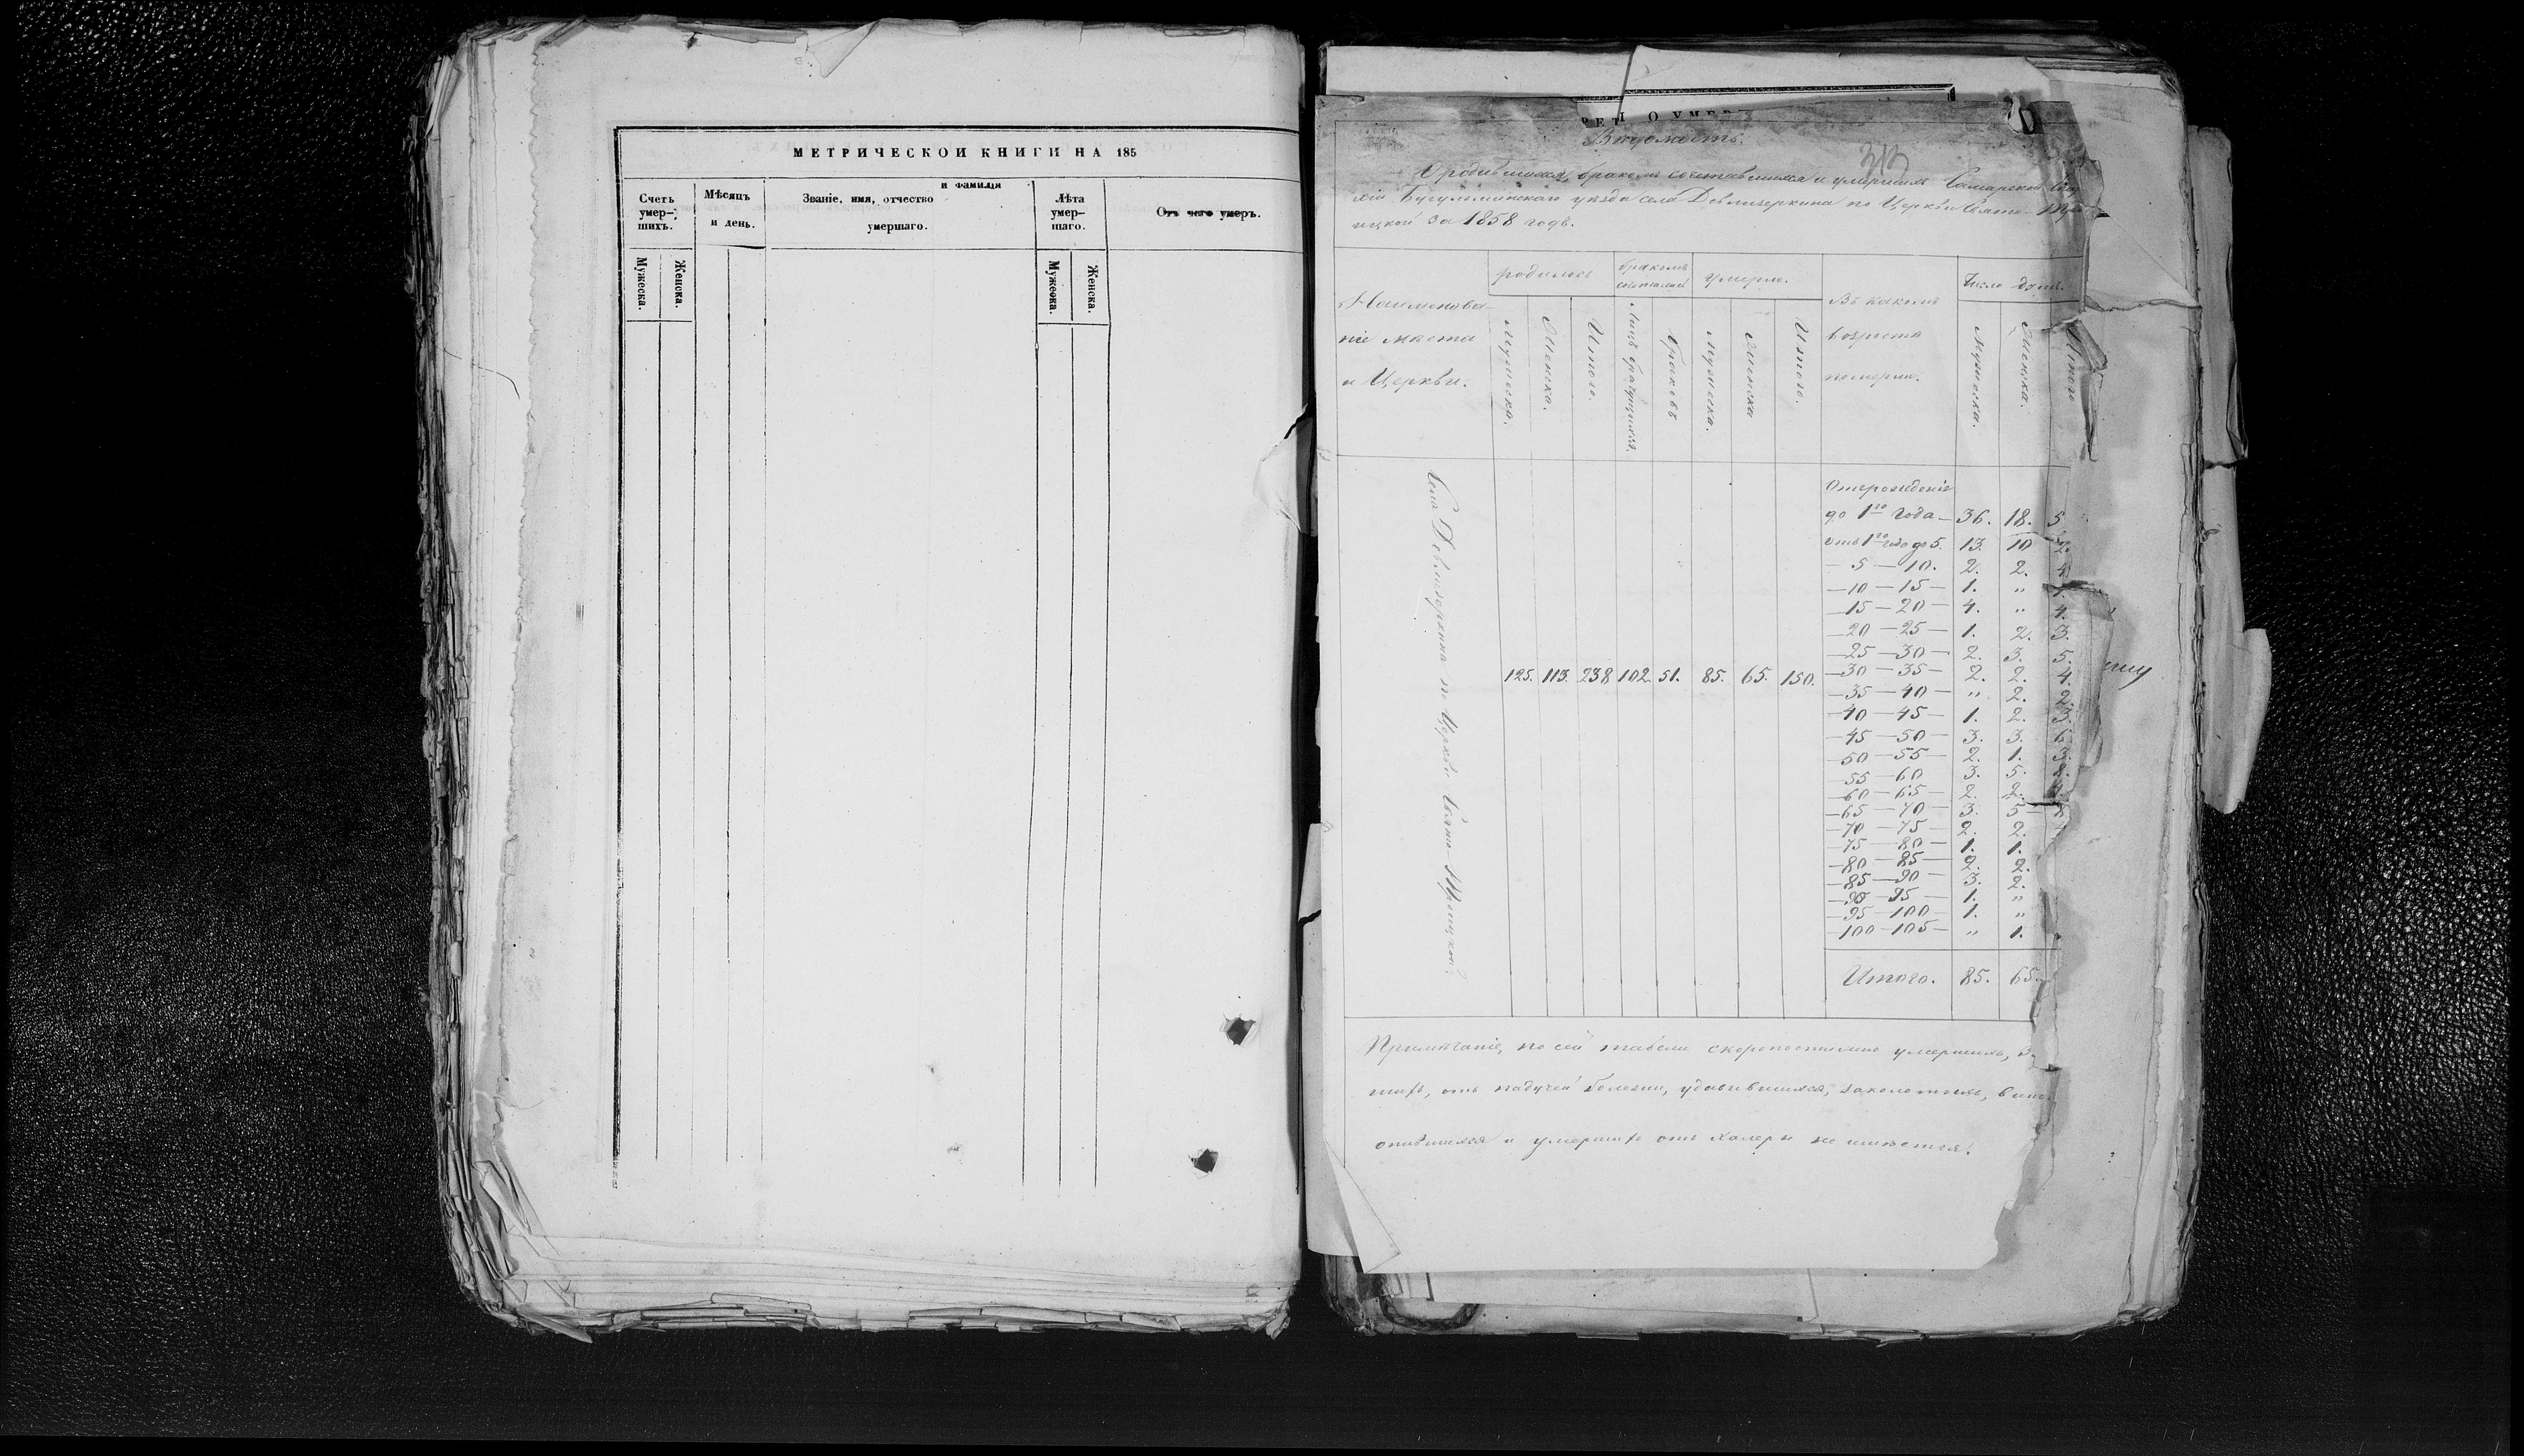 МЕТРИЧЕСКОЙ КНИГИ НА 185
Счетъ умер-шихъ.
Мѣсяцъ и день.
и фамилія
Званіе, имя, отчество
умершаго.
Лѣта умер-шаго.
Отъ чего умеръ.
Мужеска.
Женска.
Мужеска.
Женска.
О УМЕР
Вѣдомость.
313
О родившихся, бракомъ сочетавшихся и умершихъ Самарской
хіи Бугульминскаго уѣзда села Девлизеркина по Церкви Свято-Тро
ицкой за 1858 годъ.
Наименова-
ніе мѣста
и Церкви.
родилось
бракомъ
умерло.
Въ какомъ
возрастѣ
померли.
Число душъ.
Мужеска.
Женска.
Итого.
Лицъ брачущихся.
браковъ
Мужеска.
Женска
Итого.
Мужеска.
Женска.
Итого
Села Девлизеркина по Церкви Свято-Троицкой.
125. 113. 238 102. 51. 85. 65. 150.
Отъ рожденія
до 1го года — 36. 18. 5
отъ 1го года до 5. 13. 10 2
— 5 — 10. 2. 2. 4
— 10 — 15 — 1. „ 1.
— 15 — 20 — 4. „ 4.
— 20 — 25 — 1. 2. 3.
— 25 — 30 — 2. 3. 5.
— 30 — 35 — 2. 2. 4.
— 35 — 40 — „ 2. 2.
— 40 — 45 — 1. 2. 3.
— 45 — 50 — 3. 3. 6.
— 50 — 55 — 2. 1. 3.
— 55 — 60 3. 5. 8.
— 60 — 65 — 2. 2.
— 65 — 70 — 3. 5 —
— 70 — 75 — 2. 2.
— 75 — 80 — 1. 1.
— 80 — 85 — 2. 2.
— 85 — 90 — 3. 2.
— 90 — 95 — 1. „
— 95 — 100 — 1. „
— 100 — 105 — „ 1.
Итого. 85. 65.
Примѣчаніе, по сей табели скоропостижно умершихъ,
шихъ, отъ падучей болезни, удавившихся, заколотыхъ,
опившихся и умершихъ отъ холеры не имѣется.